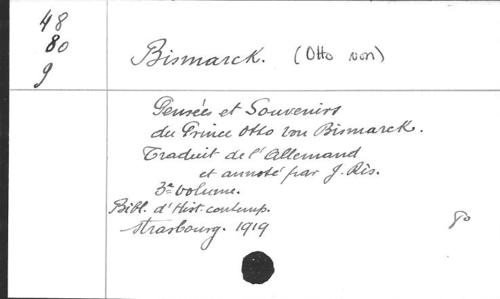 48
80
g
Bismarck. (Otto von)
Pensées et Souvenirs
du Prince Otto von Bismarck.
Traduit de l'Allemand
et annoté par J. Ris.
3e volume.
Bibl. d'Hist. contemp.
Strasbourg. 1919
80